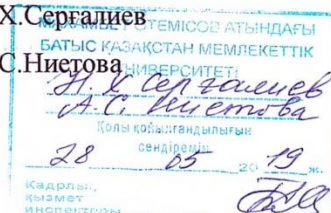 Х.Сергалиев
МАХАМБЕТ ӨТЕМІСОВ АТЫНДАҒЫ
БАТЫС ҚАЗАҚСТАН МЕМЛЕКЕТТІК
С.Ниетова
УНИВЕРСИТЕТІ
Н. Х Сергалиев
А.С. Ниетова
Қолы қойылғандылығын
сендіремін
28 05 2019 ж.
Кадрлы,
қызмет
инспекторы